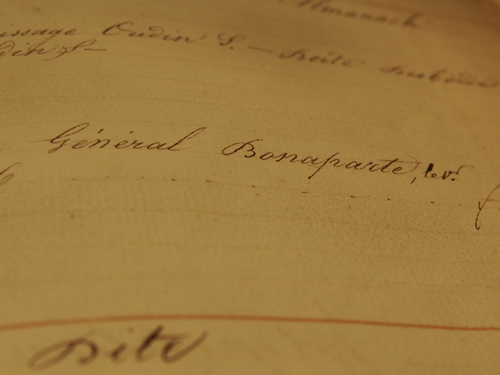 Almanach
issage Oudin S. — Boîte
Général Bonaparte, lev.r
Dite